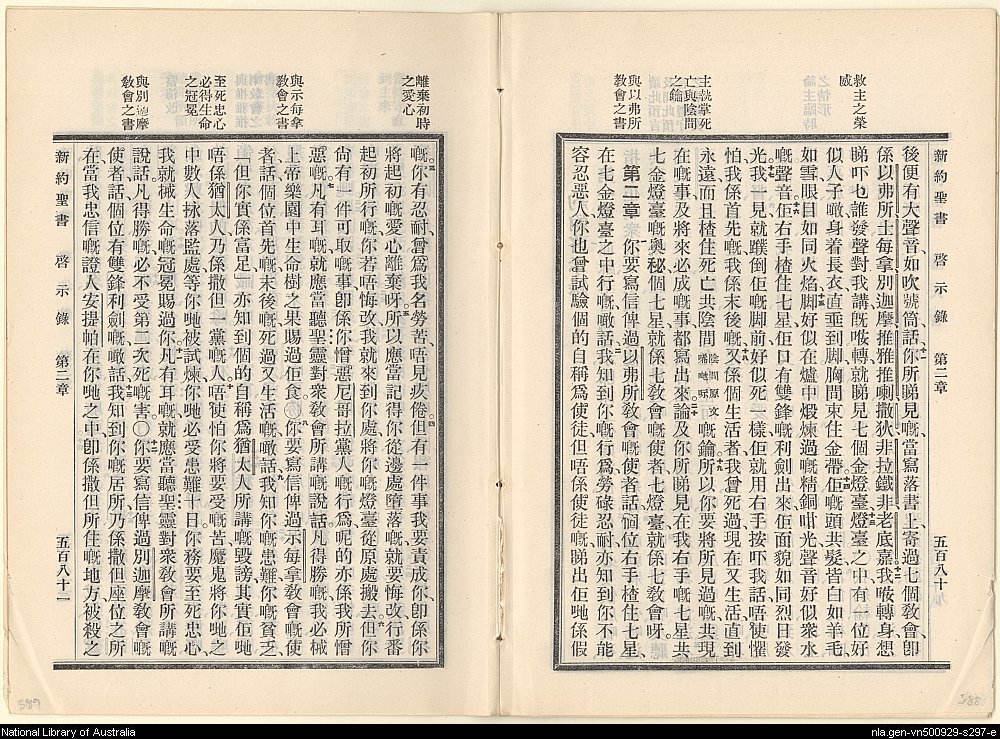 新約聖書 啓示錄 第二章 五百八十一
救主之榮
威
主執掌死
亡與陰間
之鑰
與以弗所
敎會之書
後便有大聲音如吹號筒話你所睇見嘅當寫落書上寄過七個敎會卽
係以弗所士每拿別迦摩推雅推喇撒狄非拉鐵非老底嘉我𠸉轉身想
睇吓乜誰發聲對我講旣𠸉轉就睇見七個金燈臺燈臺之中有一位好
似人子噉身着長衣直垂到脚胸間束住金帶佢嘅頭共髮皆白如羊毛
如雪眼目如同火焰脚好似在爐中煆煉過嘅精銅咁光聲音好似衆水
嘅聲音佢右手揸住七星佢口有雙鋒嘅利劍出來佢面貌如同烈日發
光我一見就蹼倒佢嘅脚前好似死一樣佢就用右手按吓我話唔使懼
怕我係首先嘅我係末後嘅又係個生活者我曾死過現在又生活直到
永遠而且揸住死亡共陰間 陰間原文 嘅鑰所以你要將所見過嘅共現
在嘅事及將來必成嘅事都寫出來論及你所睇見在我右手嘅七星共
七金燈臺嘅奧秘個七星就係七敎會嘅使者七燈臺就係七敎會呀
第二章 你要寫信俾過以弗所敎會嘅使者話個位右手揸住七星
在七金燈臺之中行嘅噉話我知到你嘅行爲勞碌忍耐亦知到你不能
容忍惡人你也曾試驗個的自稱爲使徒但唔係使徒嘅睇出佢哋係假
離棄初時
之愛心
與示每拿
敎會之書
至死忠心
必得生命
之冠冕
與別迦摩
敎會之書
嘅你有忍耐曾爲我名勞苦唔見疲倦但有一件事我要責成你卽係你
將起初嘅愛心離棄呀所以應當記得你從邊處墮落嘅就要悔改行番
起初所行嘅你若唔悔改我就來到你處將你嘅燈臺從原處搬去但你
尙有一件可取嘅事卽係你憎惡尼哥拉黨人嘅行爲呢的亦係我所憎
惡嘅凡有耳嘅就應當聽聖靈對衆敎會所講嘅說話凡得勝嘅我必槭
上帝樂園中生命樹之果賜過佢食〇你要寫信俾過示每拿敎會嘅使
者話個位首先嘅末後嘅死過又生活嘅噉話我知你嘅患難你嘅貧乏
但你實係富足亦知到個的自稱爲猶太人所講嘅毀謗其實佢哋
唔係猶太人乃係撒但一黨嘅人唔使怕你將要受嘅苦魔鬼將你哋之
中數人捸落監處等你哋被試煉你哋必受患難十日你務要至死忠心
我就槭生命嘅冠冕賜過你凡有耳嘅就應當聽聖靈對衆敎會所講嘅
說話凡得勝嘅必不受第二次死嘅害〇你要寫信俾過別迦摩敎會嘅
使者話個位有雙鋒利劍嘅噉話我知到你嘅居所乃係撒但座位之所
在當我忠信嘅證人安提帕在你哋之中卽係撒但所住嘅地方被殺之
新約聖書 啓示錄 第二章 五百八十二
589
588
National Library of Australia
nla.gen-vn500929-s297-e